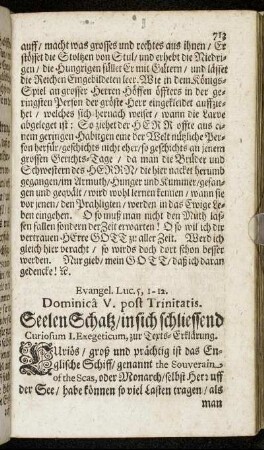 713
auff / macht was grosses und rechtes aus ihnen / Er
stösset die Stolzen von Stul / und erhebt die Niedri-
gen / die Hungrigen füllet Er mit Gütern / und lässet
die Reichen Eingebildeten leer. Wie in dem Königs-
Spiel an grosser Herren Höffen öffters in der ge-
ringsten Person der gröste Herr eingekleidet auffzie-
het / welches sich hernach weiset / wann die Larve
abgeleget ist: So ziehet der HERR offte aus ei-
nem geringen Häbitgen eine der Welt nützliche Per-
son herfür / geschichts nicht eher / so geschichts an jenem
grossen Gerichts-Tage / da man die Brüder und
Schwestern des HERRN / die hier nacket herumb
gegangen / mit Armuth / Hunger und Kummer / gefan-
gen und gequält / wird wohl kernen / wann sie
vor jenen / den Prahligten / werden in das Ewige Le-
ben eingehen. O so muß man nicht den Muth las-
sen fallen sondern der Zeit erwarten! O so will ich dir
vertrauen HErre GOTT zu aller Zeit. Werd ich
gleich hier veracht / so wirds doch dort schon besser
werden. Nur gieb / mein GOTT / daß ich daran
gedencke! &c.
Evangel. Luc. 5, 1-12.
Dominicâ V. post Trinitatis.
Seelen Schatz / in sich schliessend
Curiosum I. Exegeticum, zur Texts-Erklärung.
Curiös / groß und prächtig ist das En-
glische Schiff / genannt the Souverain
of the Scas, oder Monarch / selbst Herr uff
der See / habe können so viel Lasten tragen / als
man